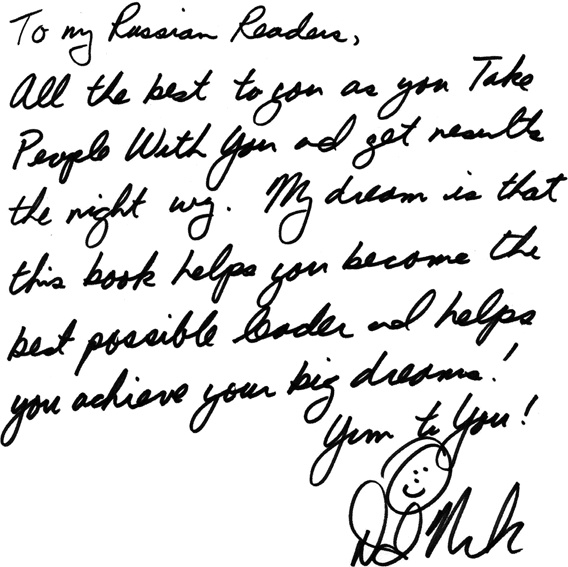 To my Russian Readers,
All the best to you as you Take
People With You and get results
the right way. My dream is that
this book helps you become the
best possible leader and helps
you achieve your big dreams!
Yum to You!